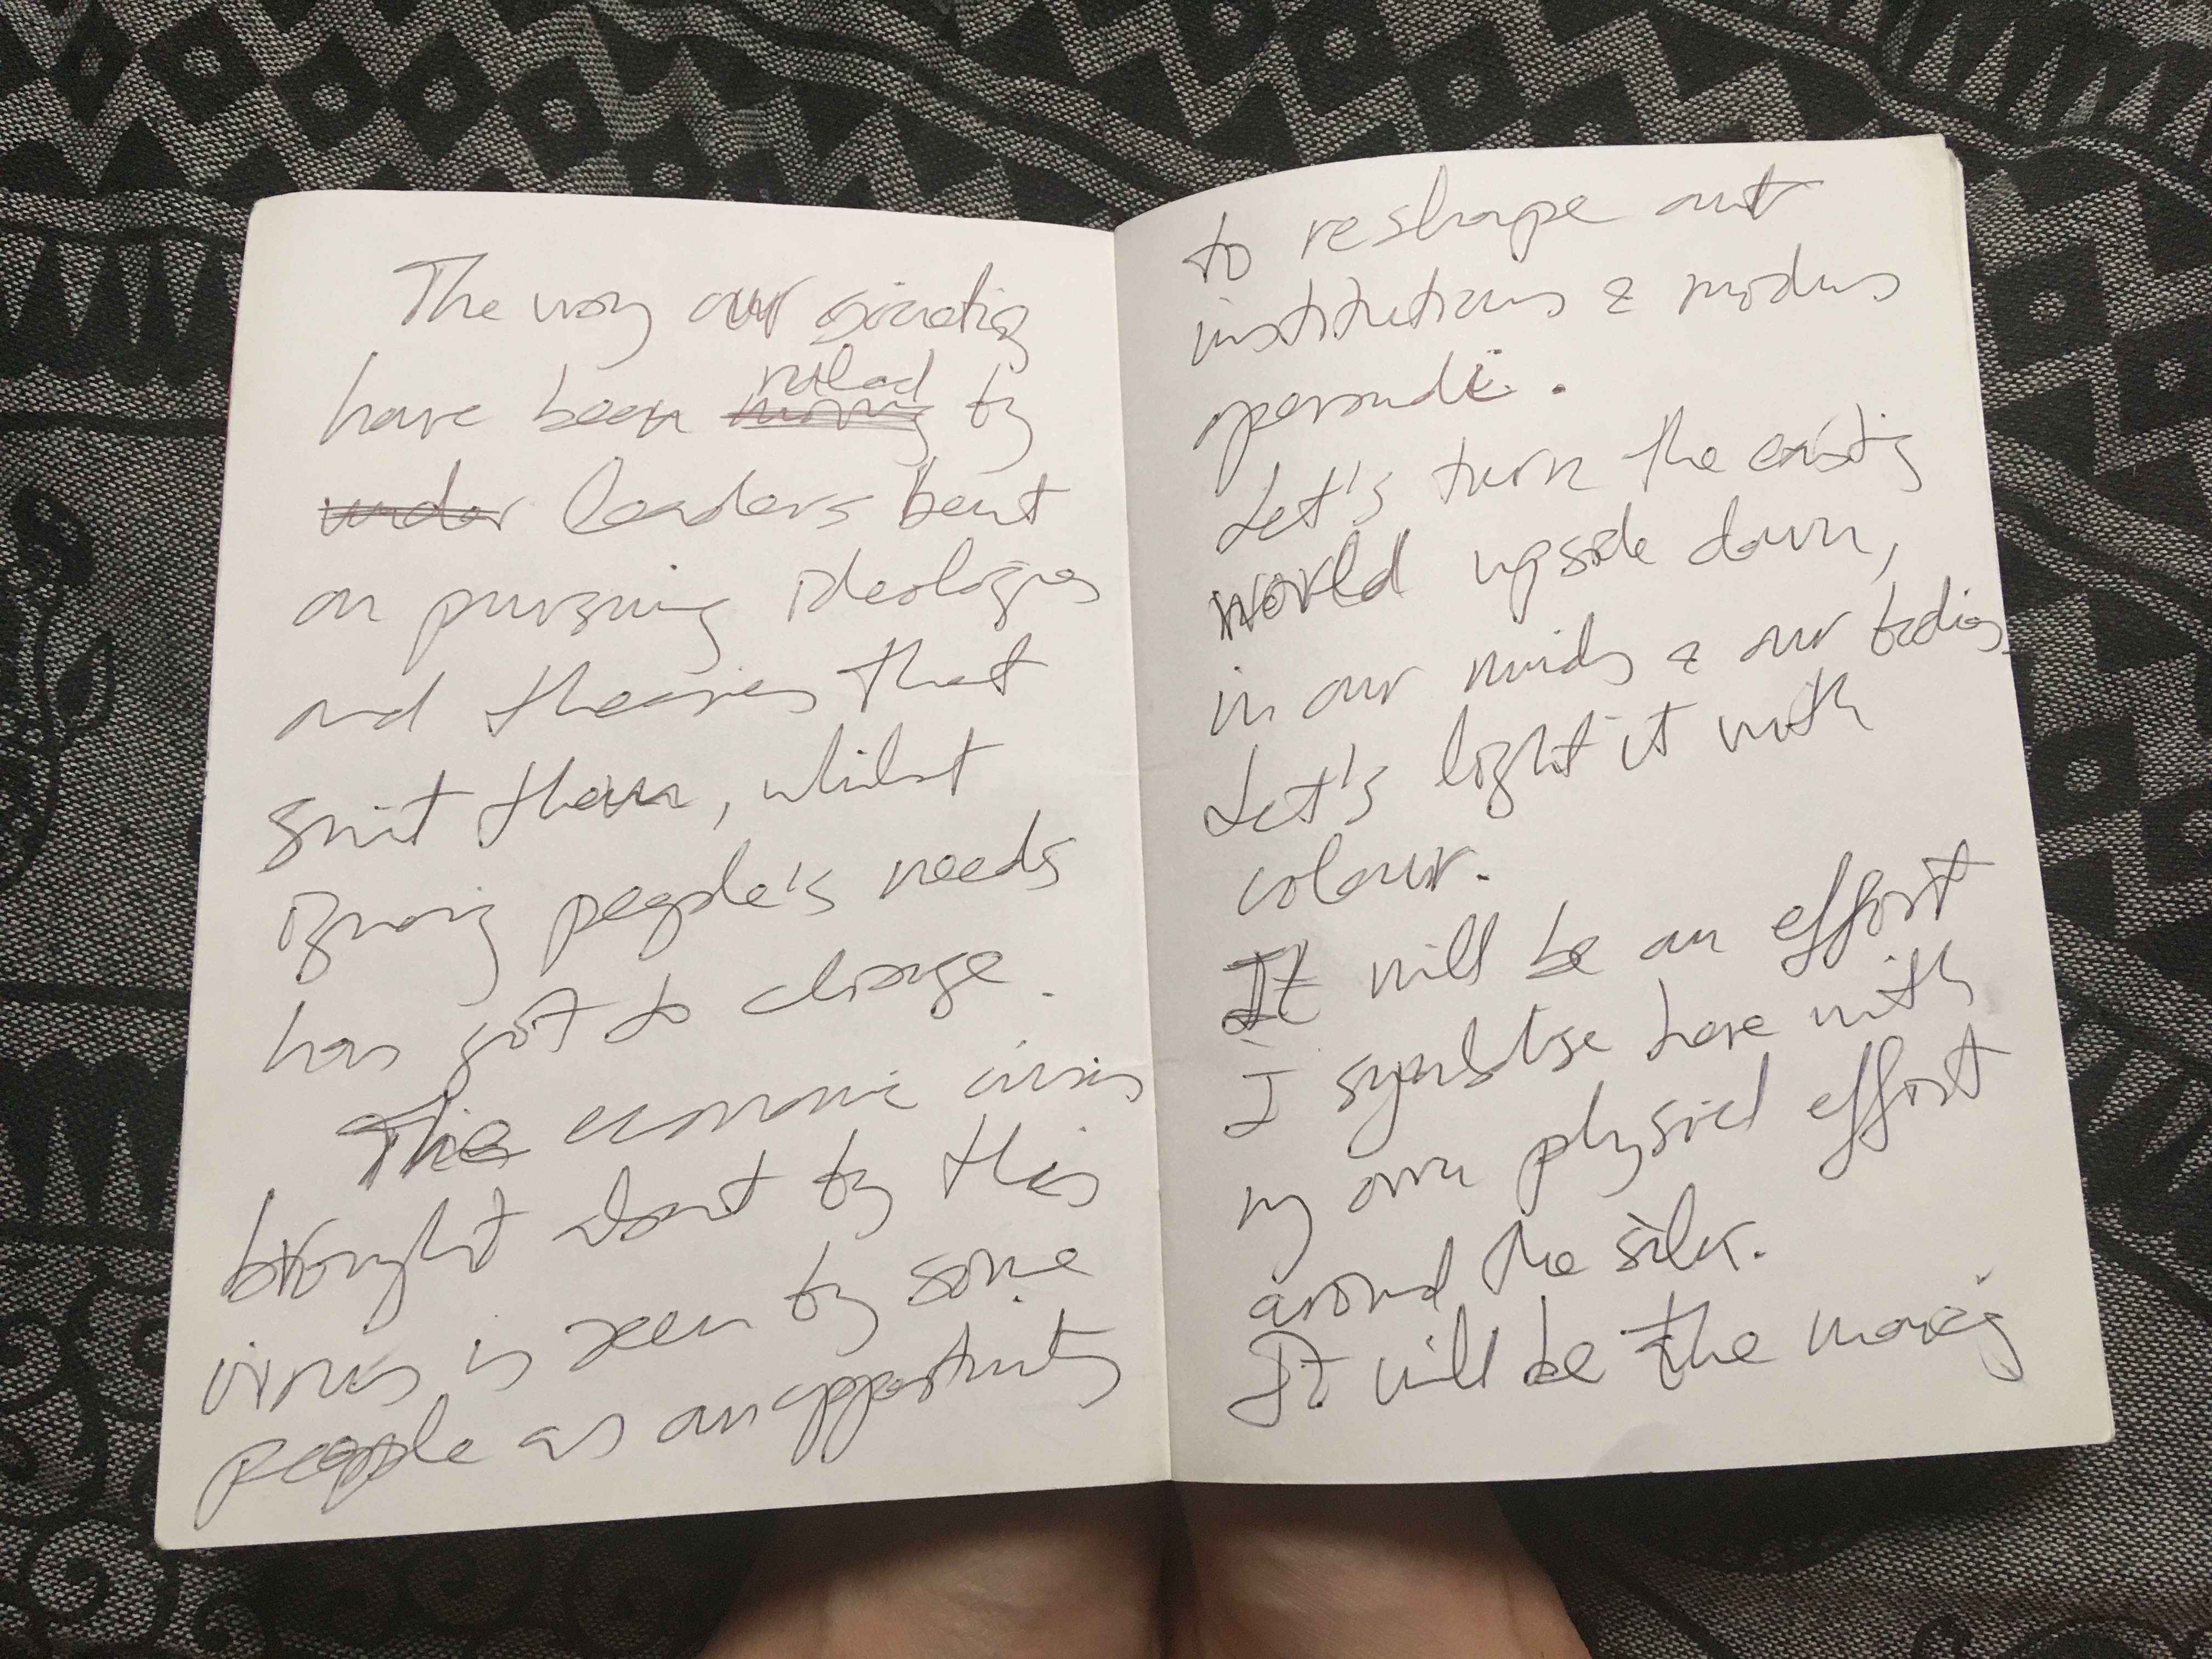 The way our societies
have been ruled by
under leaders bent
on pursuing ideologies
and theories that
suit them, whilst
ignoring people's needs
has got to change.
The economic crisis
brought about by this
virus is seen by some
people as an opportunity
to reshape out
institutions & modus
operandi.
Let's turn the existing
world upside down,
in our minds & our bodies,
Let's light it with
colour.
It will be an effort
I symbolise here with
my own physical effort
around the silk.
It will be the moving